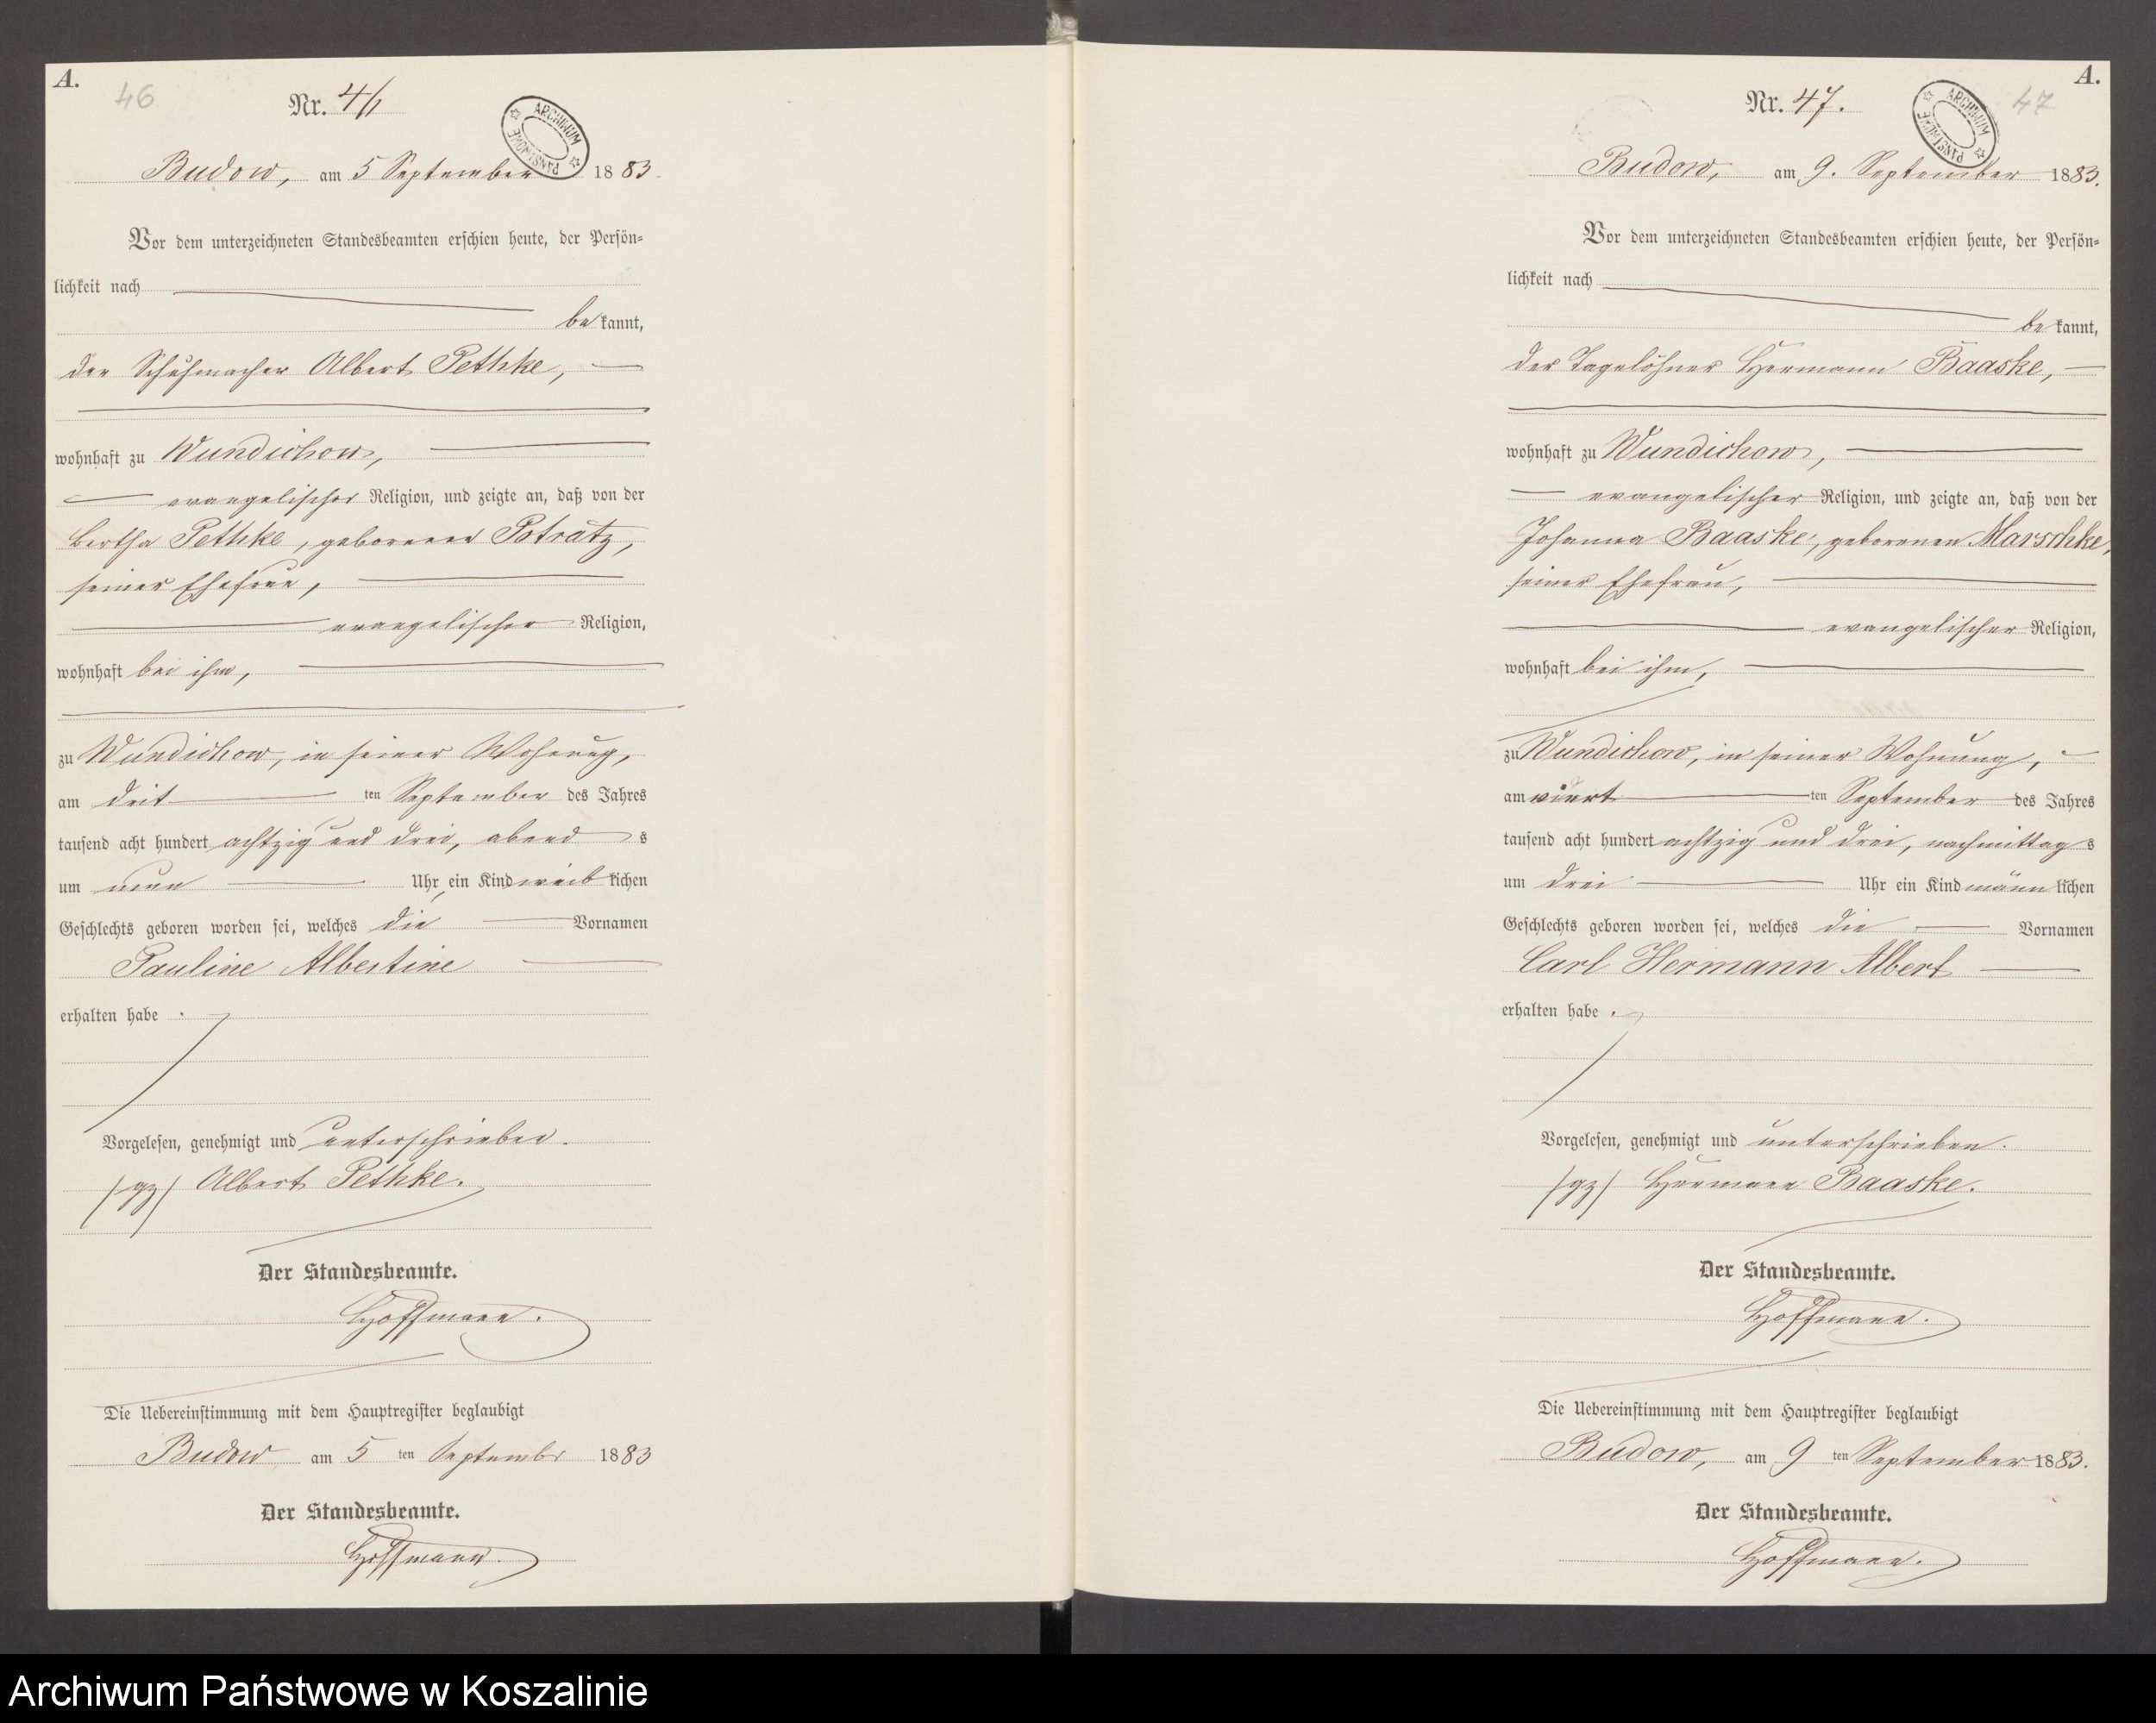 A.
46
Nr. 46
ARCHIWUM PAŃSTWOWE
Budow, am 5 September 1883.
Vor dem unterzeichneten Standesbeamten erschien heute, der Persön=
lichkeit nach
be kannt,
der Schuhmacher Albert Pethke,
wohnhaft zu Wundichow,
evangelischer Religion, und zeigte an, daß von der
Bertha Pethke, geborenen Potratz,
seiner Ehefrau,
evangelischer Religion,
wohnhaft bei ihm,
zu Wundichow, in seiner Wohnung,
am drit ten September des Jahres
tausend acht hundert achtzig und drei, abend s
um neun Uhr ein Kind weib lichen
Geschlechts geboren worden sei, welches die Vornamen
Pauline Albertine
erhalten habe.
Vorgelesen, genehmigt und unterschrieben.
/gz/ Albert Pethke.
Der Standesbeamte.
Hoffmann.
Die Uebereinstimmung mit dem Hauptregister beglaubigt
Budow am 5 ten Septembr 1883
Der Standesbeamte.
Hoffmann.
A.
47
Nr. 47.
ARCHIWUM PAŃSTWOWE
Budow, am 9. September 1883.
Vor dem unterzeichneten Standesbeamten erschien heute, der Persön=
lichkeit nach
be kannt,
der Tagelöhner Hermann Baaske,
wohnhaft zu Wundichow,
evangelischer Religion, und zeigte an, daß von der
Johanna Baaske, geborenen Marschke,
seiner Ehefrau,
evangelischer Religion,
wohnhaft bei ihm,
zu Wundichow, in seiner Wohnung,
am viert ten September des Jahres
tausend acht hundert achtzig und drei, nachmittag s
um drei Uhr ein Kind männ lichen
Geschlechts geboren worden sei, welches die Vornamen
Carl Hermann Albert
erhalten habe.
Vorgelesen, genehmigt und unterschrieben.
/gz/ Hermann Baaske.
Der Standesbeamte.
Hoffmann.
Die Uebereinstimmung mit dem Hauptregister beglaubigt
Budow, am 9 ten September 1883.
Der Standesbeamte.
Hoffmann.
Archiwum Państwowe w Koszalinie